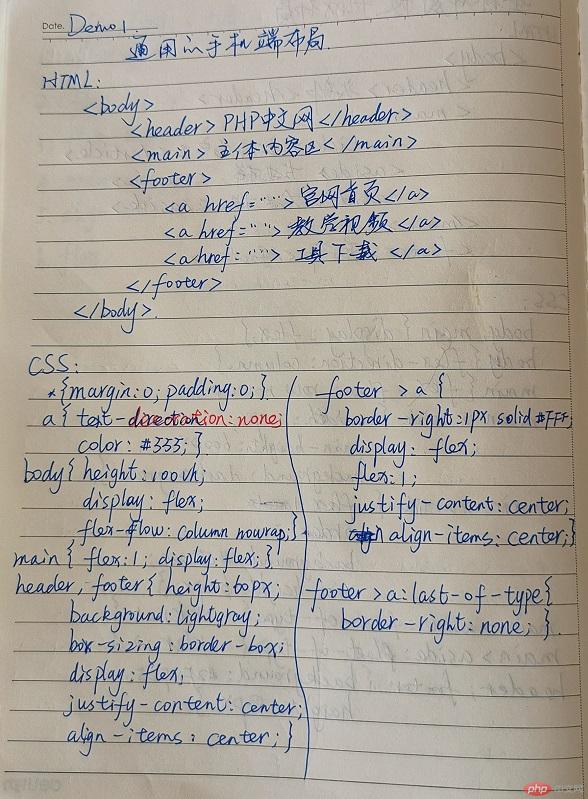 Date. Demo1
通用的手机端布局.
HTML:
<body>
<header> PHP中文网 </header>
<main> 主体内容区 </main>
<footer>
<a href=""> 官网首页 </a>
<a href=""> 教学视频 </a>
<a href=""> 工具下载 </a>
</footer>
</body>.
CSS:
*{margin:0; padding:0;}
a{ text-direction:none;
color: #555; }
body{ height:100vh;
display: flex;
flex-flow: column nowrap;}
main{ flex:1; display:flex;}
header, footer{ height:60px;
background: lightgray;
box-sizing: border-box;
display: flex;
justify-content: center;
align-items: center; }
footer > a {
border-right:1px solid #FFF;
display: flex;
flex:1;
justify-content: center;
align-items: center;}
footer > a:last-of-type{
border-right: none; }.
php